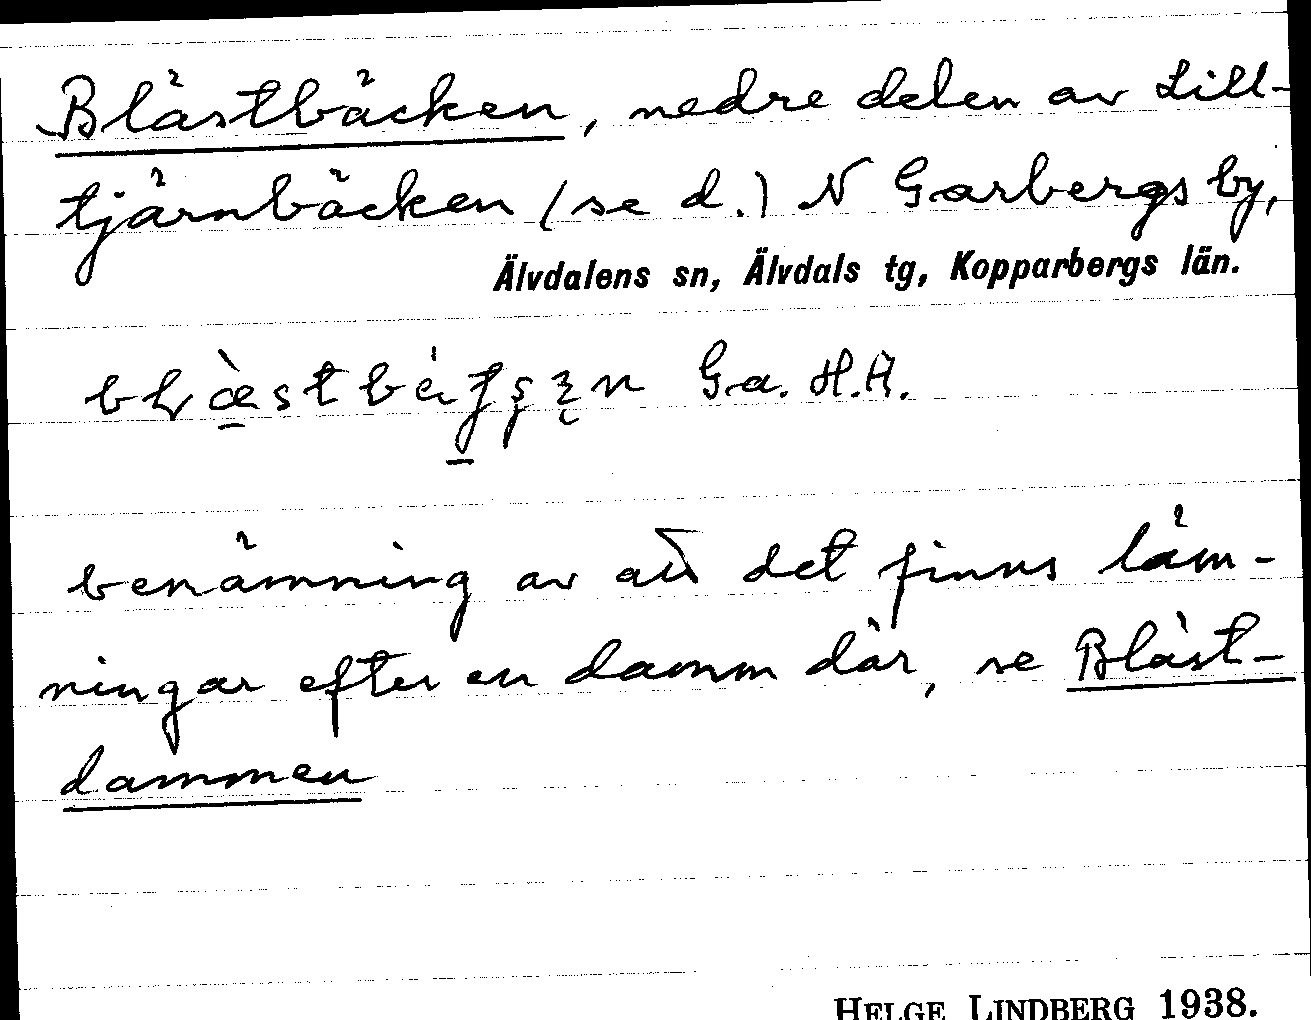 Blästbäcken, nedre delen av Lill-
tjärnbäcken (se d.) N Garbergs by,
Älvdalens sn, Älvdals tg, Kopparbergs län.
Ga. H.A.
benämning av att det finns läm-
ningar efter en damm där, se Bläst-
dammen
HELGE LINDBERG 1938.